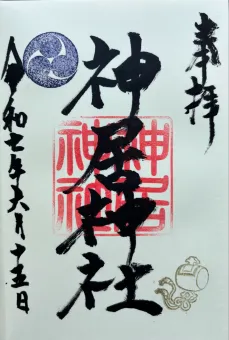 奉拝
神居神社
神居
神社
令和七年六月十五日